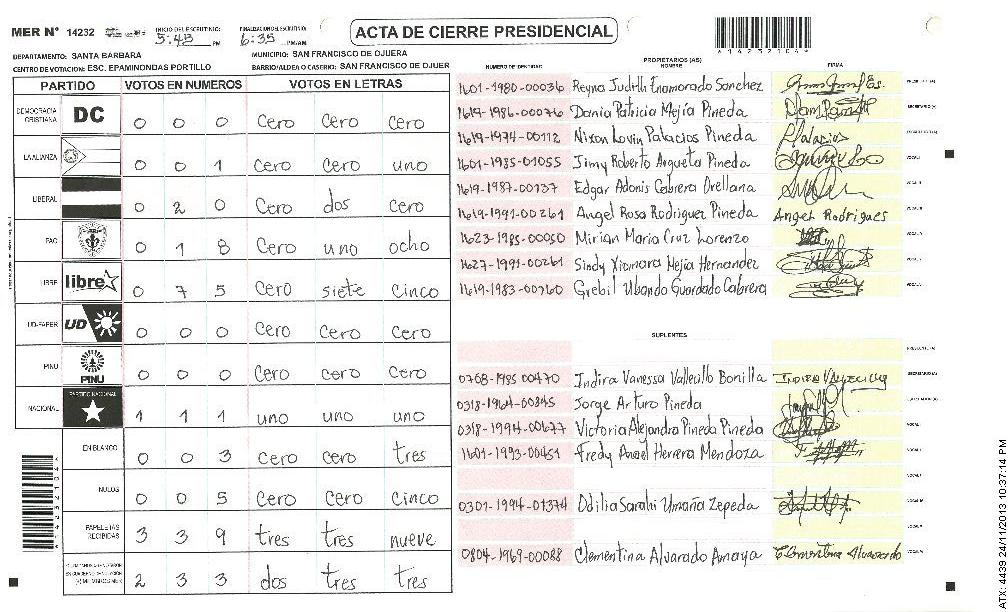 MER N° 14232
INICIO DEL ESCRUTINIO: 5:48 PM
FINALIZACION DEL ESCRUTINIO: 6:35 PM/AM
ACTA DE CIERRE PRESIDENCIAL
DEPARTAMENTO: SANTA BARBARA
MUNICIPIO: SAN FRANCISCO DE OJUERA
CENTRO DE VOTACION: ESC. EPAMINONDAS PORTILLO
BARRIO/ALDEA O CASERIO: SAN FRANCISCO DE OJUER
PARTIDO VOTOS EN NUMEROS VOTOS EN LETRAS
DEMOCRACIA CRISTIANA DC 0 0 0 Cero Cero Cero
LA ALIANZA 0 0 1 Cero Cero uno
LIBERAL 0 2 0 Cero dos cero
PAC 0 1 8 Cero uno ocho
LIBRE libre 0 7 5 Cero siete cinco
UD-FAPER UD 0 0 0 Cero Cero Cero
PINU PINU 0 0 0 Cero Cero Cero
NACIONAL PARTIDO NACIONAL 1 1 1 uno uno uno
EN BLANCO 0 0 3 cero cero tres
NULOS 0 0 5 Cero Cero Cinco
PAPELETAS RECIBIDAS 3 3 9 tres tres nueve
2 3 3 dos tres tres
PROPIETARIOS (AS)
NUMERO DE IDENTIDAD NOMBRE FIRMA
1601-1980-00036 Reyna Judith Enamorado Sanchez
1619-1986-00076 Dania Patricia Mejía Pineda
1619-1974-00112 Nixon Lovin Palacios Pineda Palacios
1601-1985-01055 Jimy Roberto Argueta Pineda
1619-1987-00137 Edgar Adonis Cabrera Orellana
1619-1991-00261 Angel Rosa Rodriguez Pineda Angel Rodrigues
1623-1985-00050 Mirian Maria Cruz Lorenzo
1627-1991-00261 Sindy Xiomara Mejia Hernandez
1619-1983-00160 Grebil Ubando Guardado Cabrera
SUPLENTES
0768-1985 00470 Indira Vanessa Vallecillo Bonilla
0318-1964-00845 Jorge Arturo Pineda
0318-1994-00677 Victoria Alejandra Pineda Pineda
1601-1993-00451 Fredy Angel Herrera Mendoza
0301-1994-01374 Odilia Sarahi Umaña Zepeda
0804-1969-00088 Clementina Alvarado Amaya Clementina Alvarado
ATX: 4439 24/11/2013 10:37:14 PM